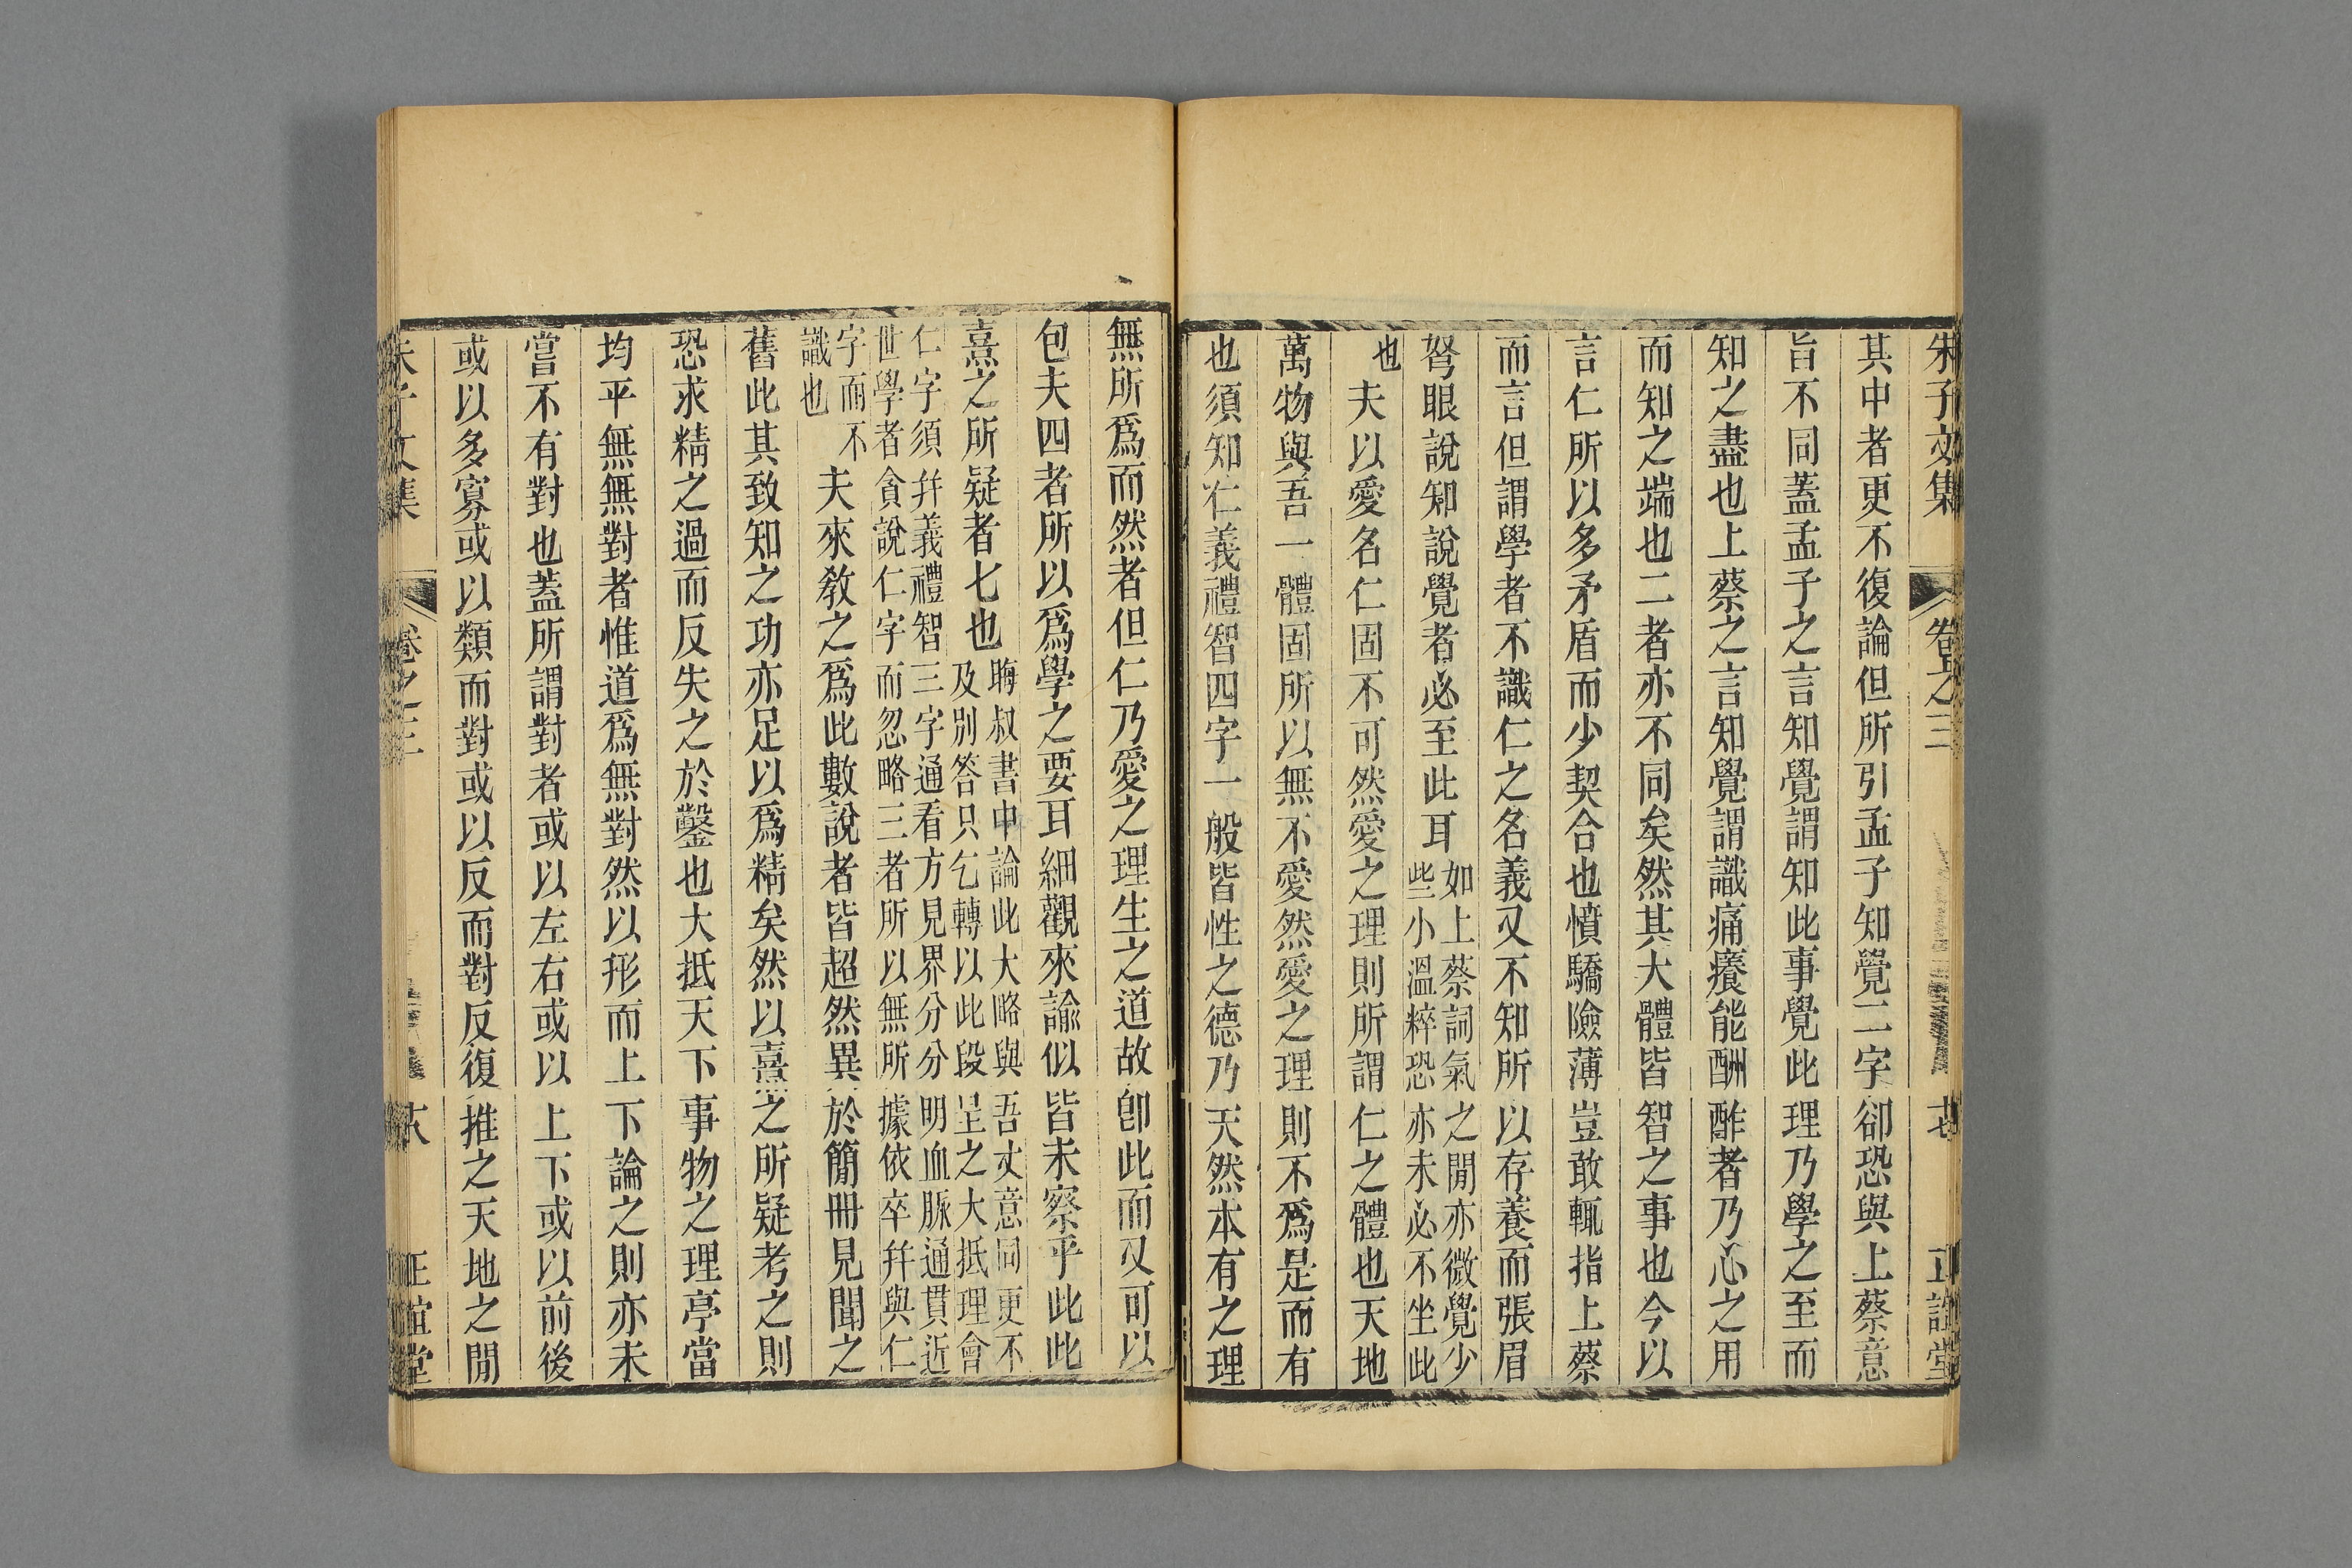 朱子文集 卷之三 十七 正誼堂
其中者更不復論但所引孟子知覺二字卻恐與上蔡意
旨不同蓋孟子之言知覺謂知此事覺此理乃學之至而
知之盡也上蔡之言知覺謂識痛癢能酬酢者乃心之用
而知之端也二者亦不同矣然其大體皆智之事也今以
言仁所以多矛盾而少契合也憤驕險薄豈敢輒指上蔡
而言但謂學者不識仁之名義又不知所以存養而張眉
努眼說知說覺者必至此耳如上蔡詞氣之閒亦微覺少
些小溫粹恐亦未必不坐此
也夫以愛名仁固不可然愛之理則所謂仁之體也天地
萬物與吾一體固所以無不愛然愛之理則不爲是而有
也須知仁義禮智四字一般皆性之德乃天然本有之理
無所爲而然者但仁乃愛之理生之道故卽此而又可以
包夫四者所以爲學之要耳細觀來諭似皆未察乎此此
熹之所疑者七也晦叔書中論此大略與吾丈意同更不
及別答只乞轉以此段呈之大抵理會
仁字須幷義禮智三字通看方見界分分明血脈通貫近
世學者貪說仁字而忽略三者所以無所據依卒幷與仁
字而不
識也夫來敎之爲此數說者皆超然異於簡冊見聞之
舊此其致知之功亦足以爲精矣然以熹之所疑考之則
恐求精之過而反失之於鑿也大抵天下事物之理亭當
均平無無對者惟道爲無對然以形而上下論之則亦未
嘗不有對也蓋所謂對者或以左右或以上下或以前後
或以多寡或以類而對或以反而對反復推之天地之閒
朱子文集 卷之三 十八 正誼堂